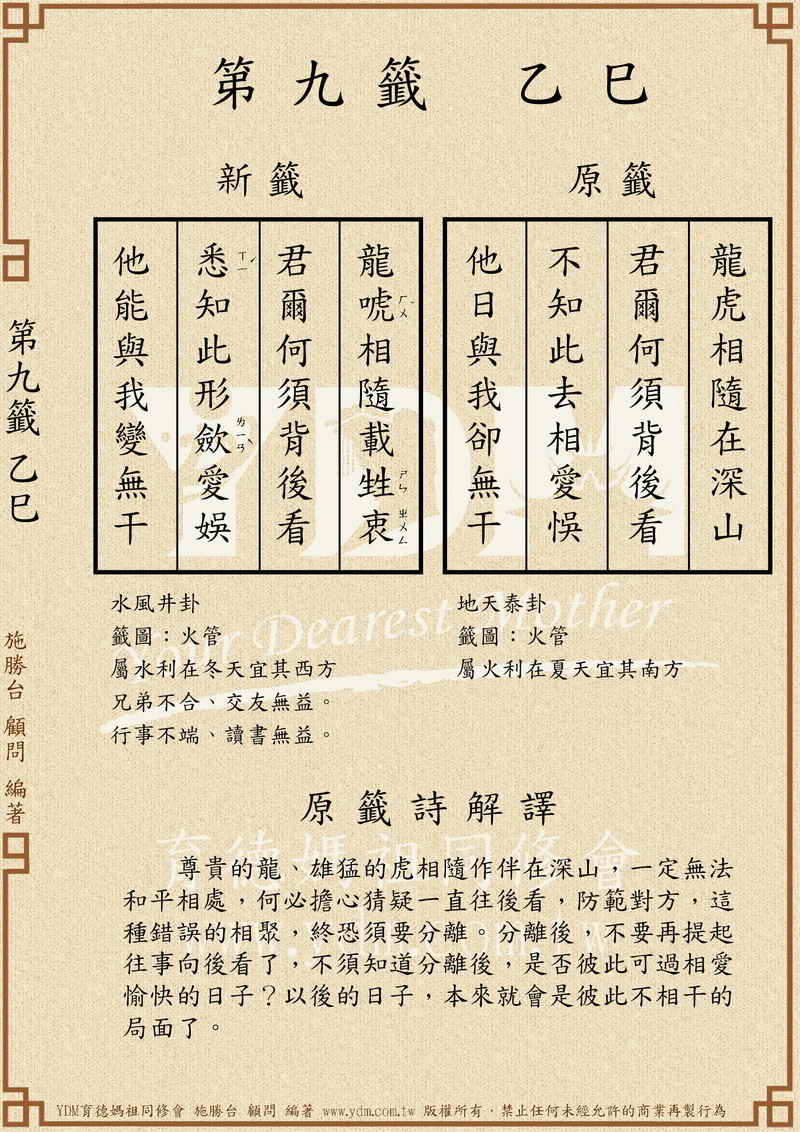 第九籤 乙巳
原籤
龍虎相隨在深山
君爾何須背後看
不知此去相愛悞
他日與我卻無干
地天泰卦
籤圖：火管
屬火利在夏天宜其南方
新籤
龍唬ㄏㄨˇ相隨載甡ㄕㄣ衷ㄓㄨㄥ
君爾何須背後看
悉ㄒㄧˊ知此形歛ㄌㄧㄢˋ愛娛
他能與我變無干
水風井卦
籤圖：火管
屬水利在冬天宜其西方
兄弟不合、交友無益。
行事不端、讀書無益。
原籤詩解譯
尊貴的龍、雄猛的虎相隨作伴在深山，一定無法
和平相處，何必擔心猜疑一直往後看，防範對方，這
種錯誤的相聚，終恐須要分離。分離後，不要再提起
往事向後看了，不須知道分離後，是否彼此可過相愛
愉快的日子？以後的日子，本來就會是彼此不相干的
局面了。
第九籤 乙巳
施勝台 顧問 編著
YDM
Your Dearest Mother
育德媽祖同修會
YDM育德媽祖同修會 施勝台 顧問 編著 www.ydm.com.tw 版權所有．禁止任何未經允許的商業再製行為